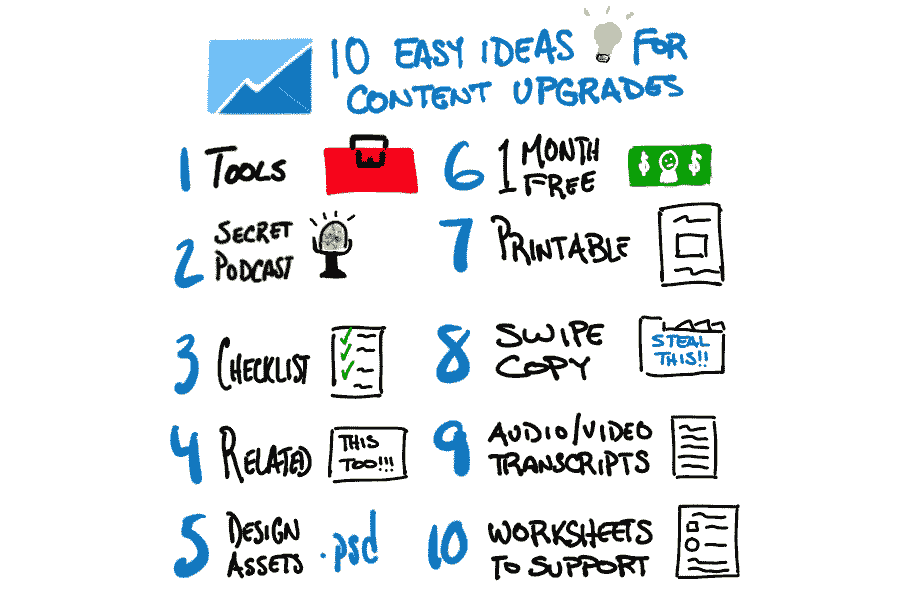 10 EASY IDEAS FOR
CONTENT UPGRADES
1 TOOLS
2 SECRET
PODCAST
3 CHECKLIST
4 RELATED
THIS
TOO!!!
5 DESIGN
ASSETS .psd
6 1 MONTH
FREE
$ $
7 PRINTABLE
8 SWIPE
COPY
STEAL
THIS!!
9 AUDIO/VIDEO
TRANSCRIPTS
10 WORKSHEETS
TO SUPPORT